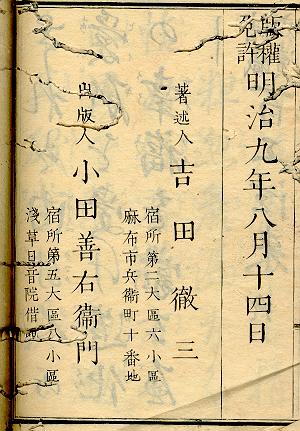 版權免許 明治九年八月十四日
著述人 吉田徹三
宿所第二大區六小區
麻布市兵衞町十番地
出版人 小田善右衞門
宿所第五大區八小區
淺草日音院借地